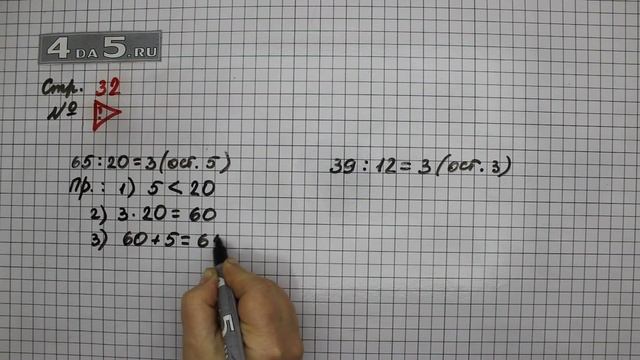 4 DA 5.RU
Стр. 32
№ !
65 : 20 = 3 (ост. 5)
Пр. : 1) 5 < 20
2) 3 · 20 = 60
3) 60 + 5 = 6
39 : 12 = 3 (ост. 3)